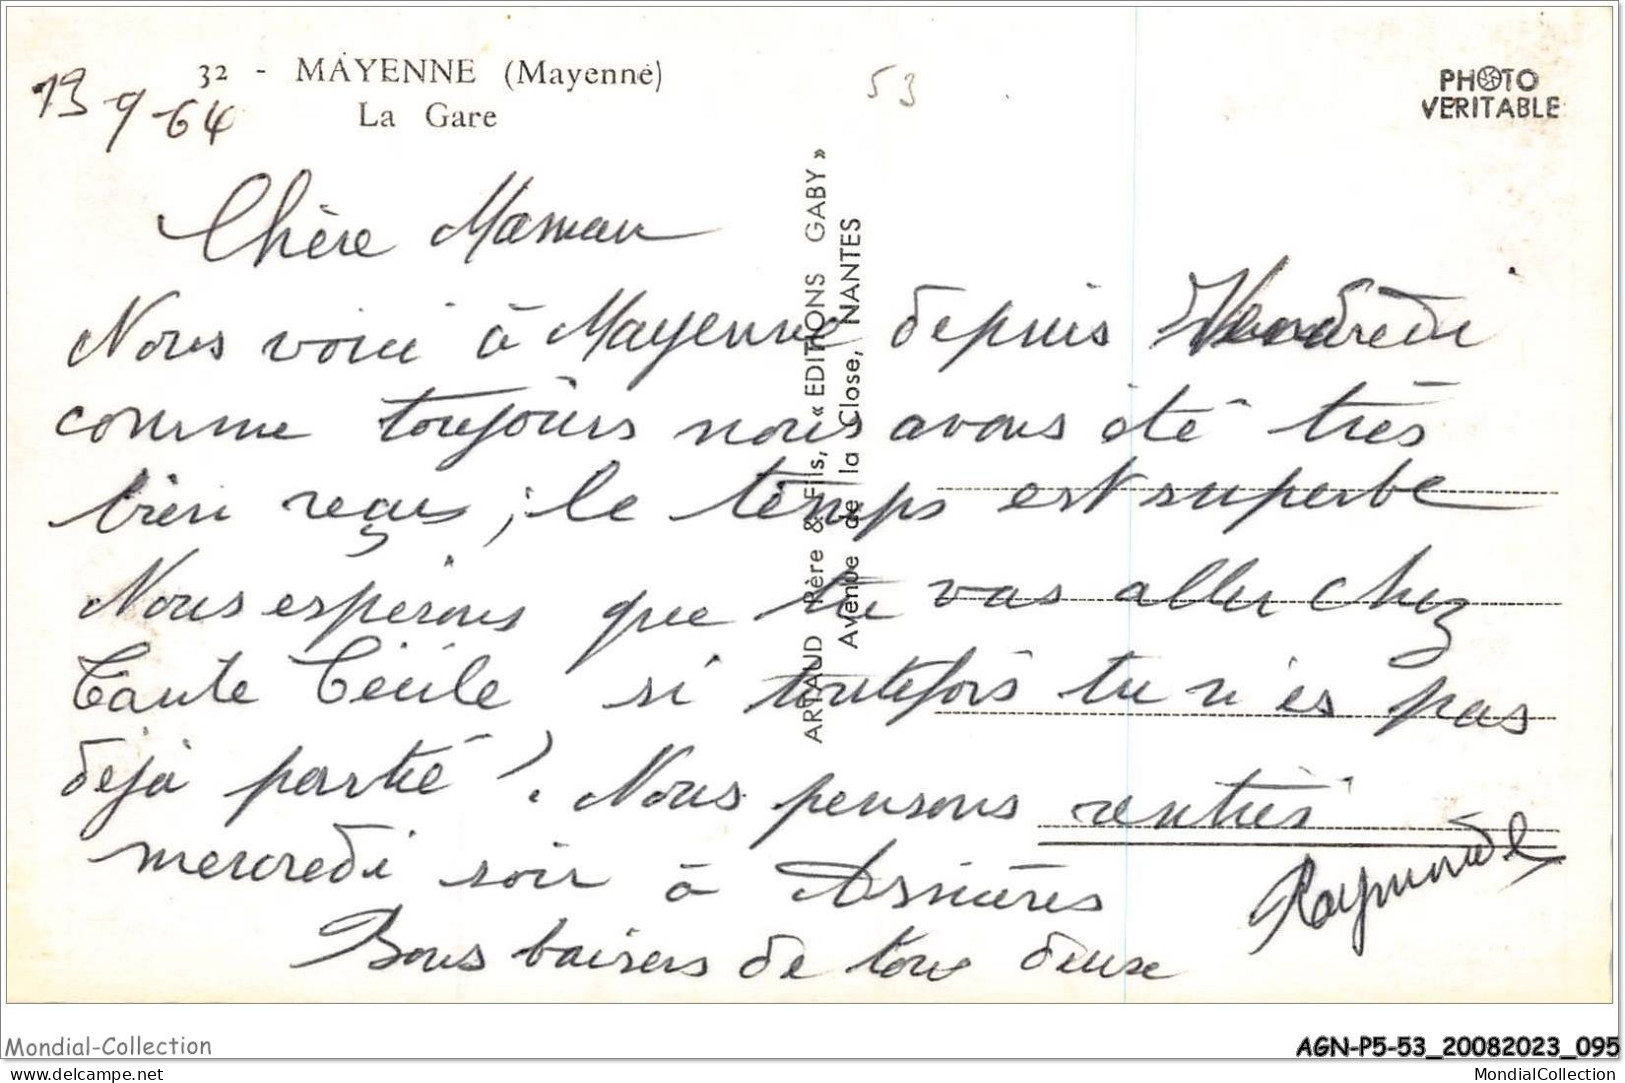 32 - MAYENNE (Mayenne)
La Gare
13-9-64
53
PHOTO
VERITABLE
ARTAUD Père & Fils, « EDITIONS GABY »
Avenue de la Close, NANTES
Chère Maman
Nous voici à Mayenne depuis Vendredi
comme toujours nous avons été très
bien reçus ; le temps est superbe
Nous espérons que tu vas aller chez
Tante Cécile si toutefois tu n'es pas
déjà partie ?. Nous pensons rentrer
mercredi soir à Asnières
Bons baisers de tous deux
Raymonde
Mondial-Collection
AGN-P5-53_20082023_095
www.delcampe.net
MondialCollection